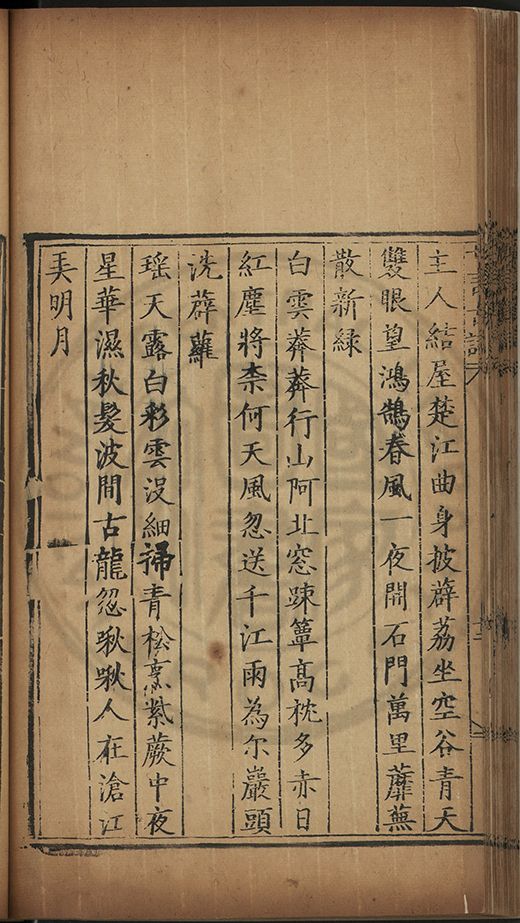 主人結屋楚江曲身披薜荔坐空谷青天
雙眼望鴻鵠春風一夜開石門萬里蘼蕪
散新緑
白雲莽莽行山阿北窓踈簟髙枕多赤日
紅塵將柰何天風忽送千江雨為尔巖頭
洗薜蘿
瑶天露白彩雲沒細掃青松烹紫蕨中夜
星華濕秋髮波間古龍忽啾啾人在滄江
弄明月